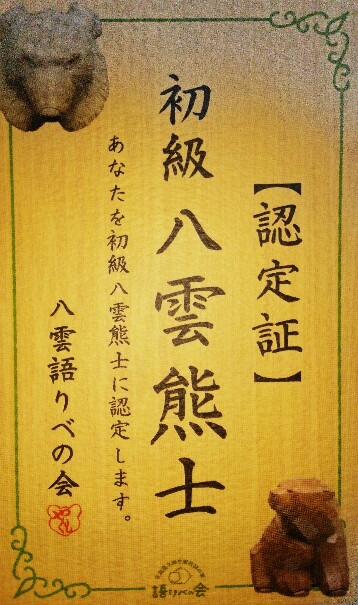 【認定証】
初級 八雲熊士
あなたを初級八雲熊士に認定します。
八雲語りべの会
語りべの会